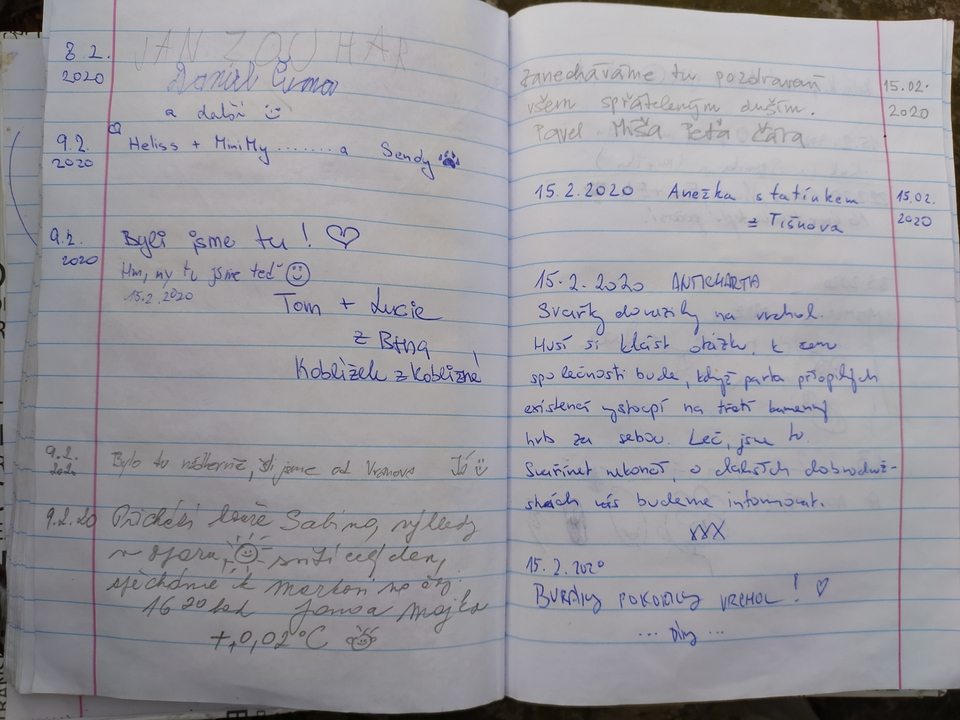 8.2.
2020
JAN ZOUHAR
Daniel
a další
9.2.
2020
Heliss + MiniMy ........ a Sendy
9.2.
2020
Byli jsme tu!
Hm, my tu jsme teď
15.2.2020
Tom + Lucie
z Brna
Koblížek z Koblížné!
9.2.
2020
Bylo tu nádherně, šli jsme od Vranova
9.2.20
Přichází bouře Sabina, výhledy
v oparu, svítí celý den,
16 20 hod Jana a Majka
+0,02°C
Zanecháváme tu pozdravení
všem spřáteleným duším.
Pavel Míša Peťa Čára
15.02.
2020
15.2.2020 Anežka s tatínkem
z Tišnova
15.02.
2020
15.2.2020 ANTICHARTA
Svářky dorazily na vrchol.
Musí si klást otázku, k čemu
společnosti bude, když parta přiopilých
existencí vystoupí na třetí kamenný
hrb za sebou. Leč, jsme tu.
Svařinet nekončí, o dalších dobrodruž-
stvích vás budeme informovat.
XXX
15.2.2020
BURÁKY POKOŘILY VRCHOL!
... Díky ...